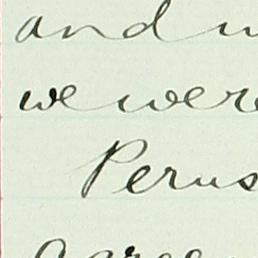 and
we were
Perus
agree